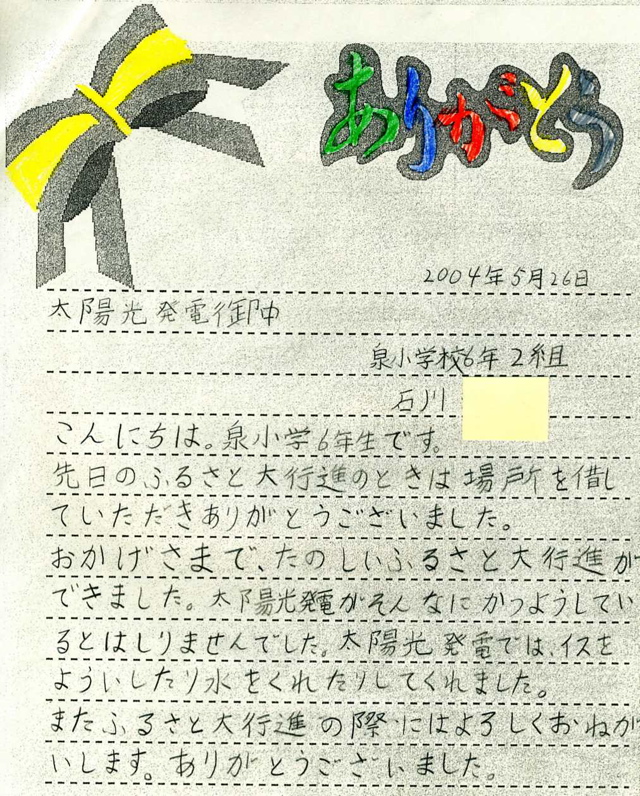 ありがとう
2004年5月26日
太陽光発電御中
泉小学校6年2組
石川
こんにちは。泉小学6年生です。
先日のふるさと大行進のときは場所を借し
ていただきありがとうございました。
おかげさまで、たのしいふるさと大行進が
できました。太陽光発電がそんなにかつようしてい
るとはしりませんでした。太陽光発電では、イスを
よういしたり水をくれたりしてくれました。
またふるさと大行進の際にはよろしくおねが
いします。ありがとうございました。